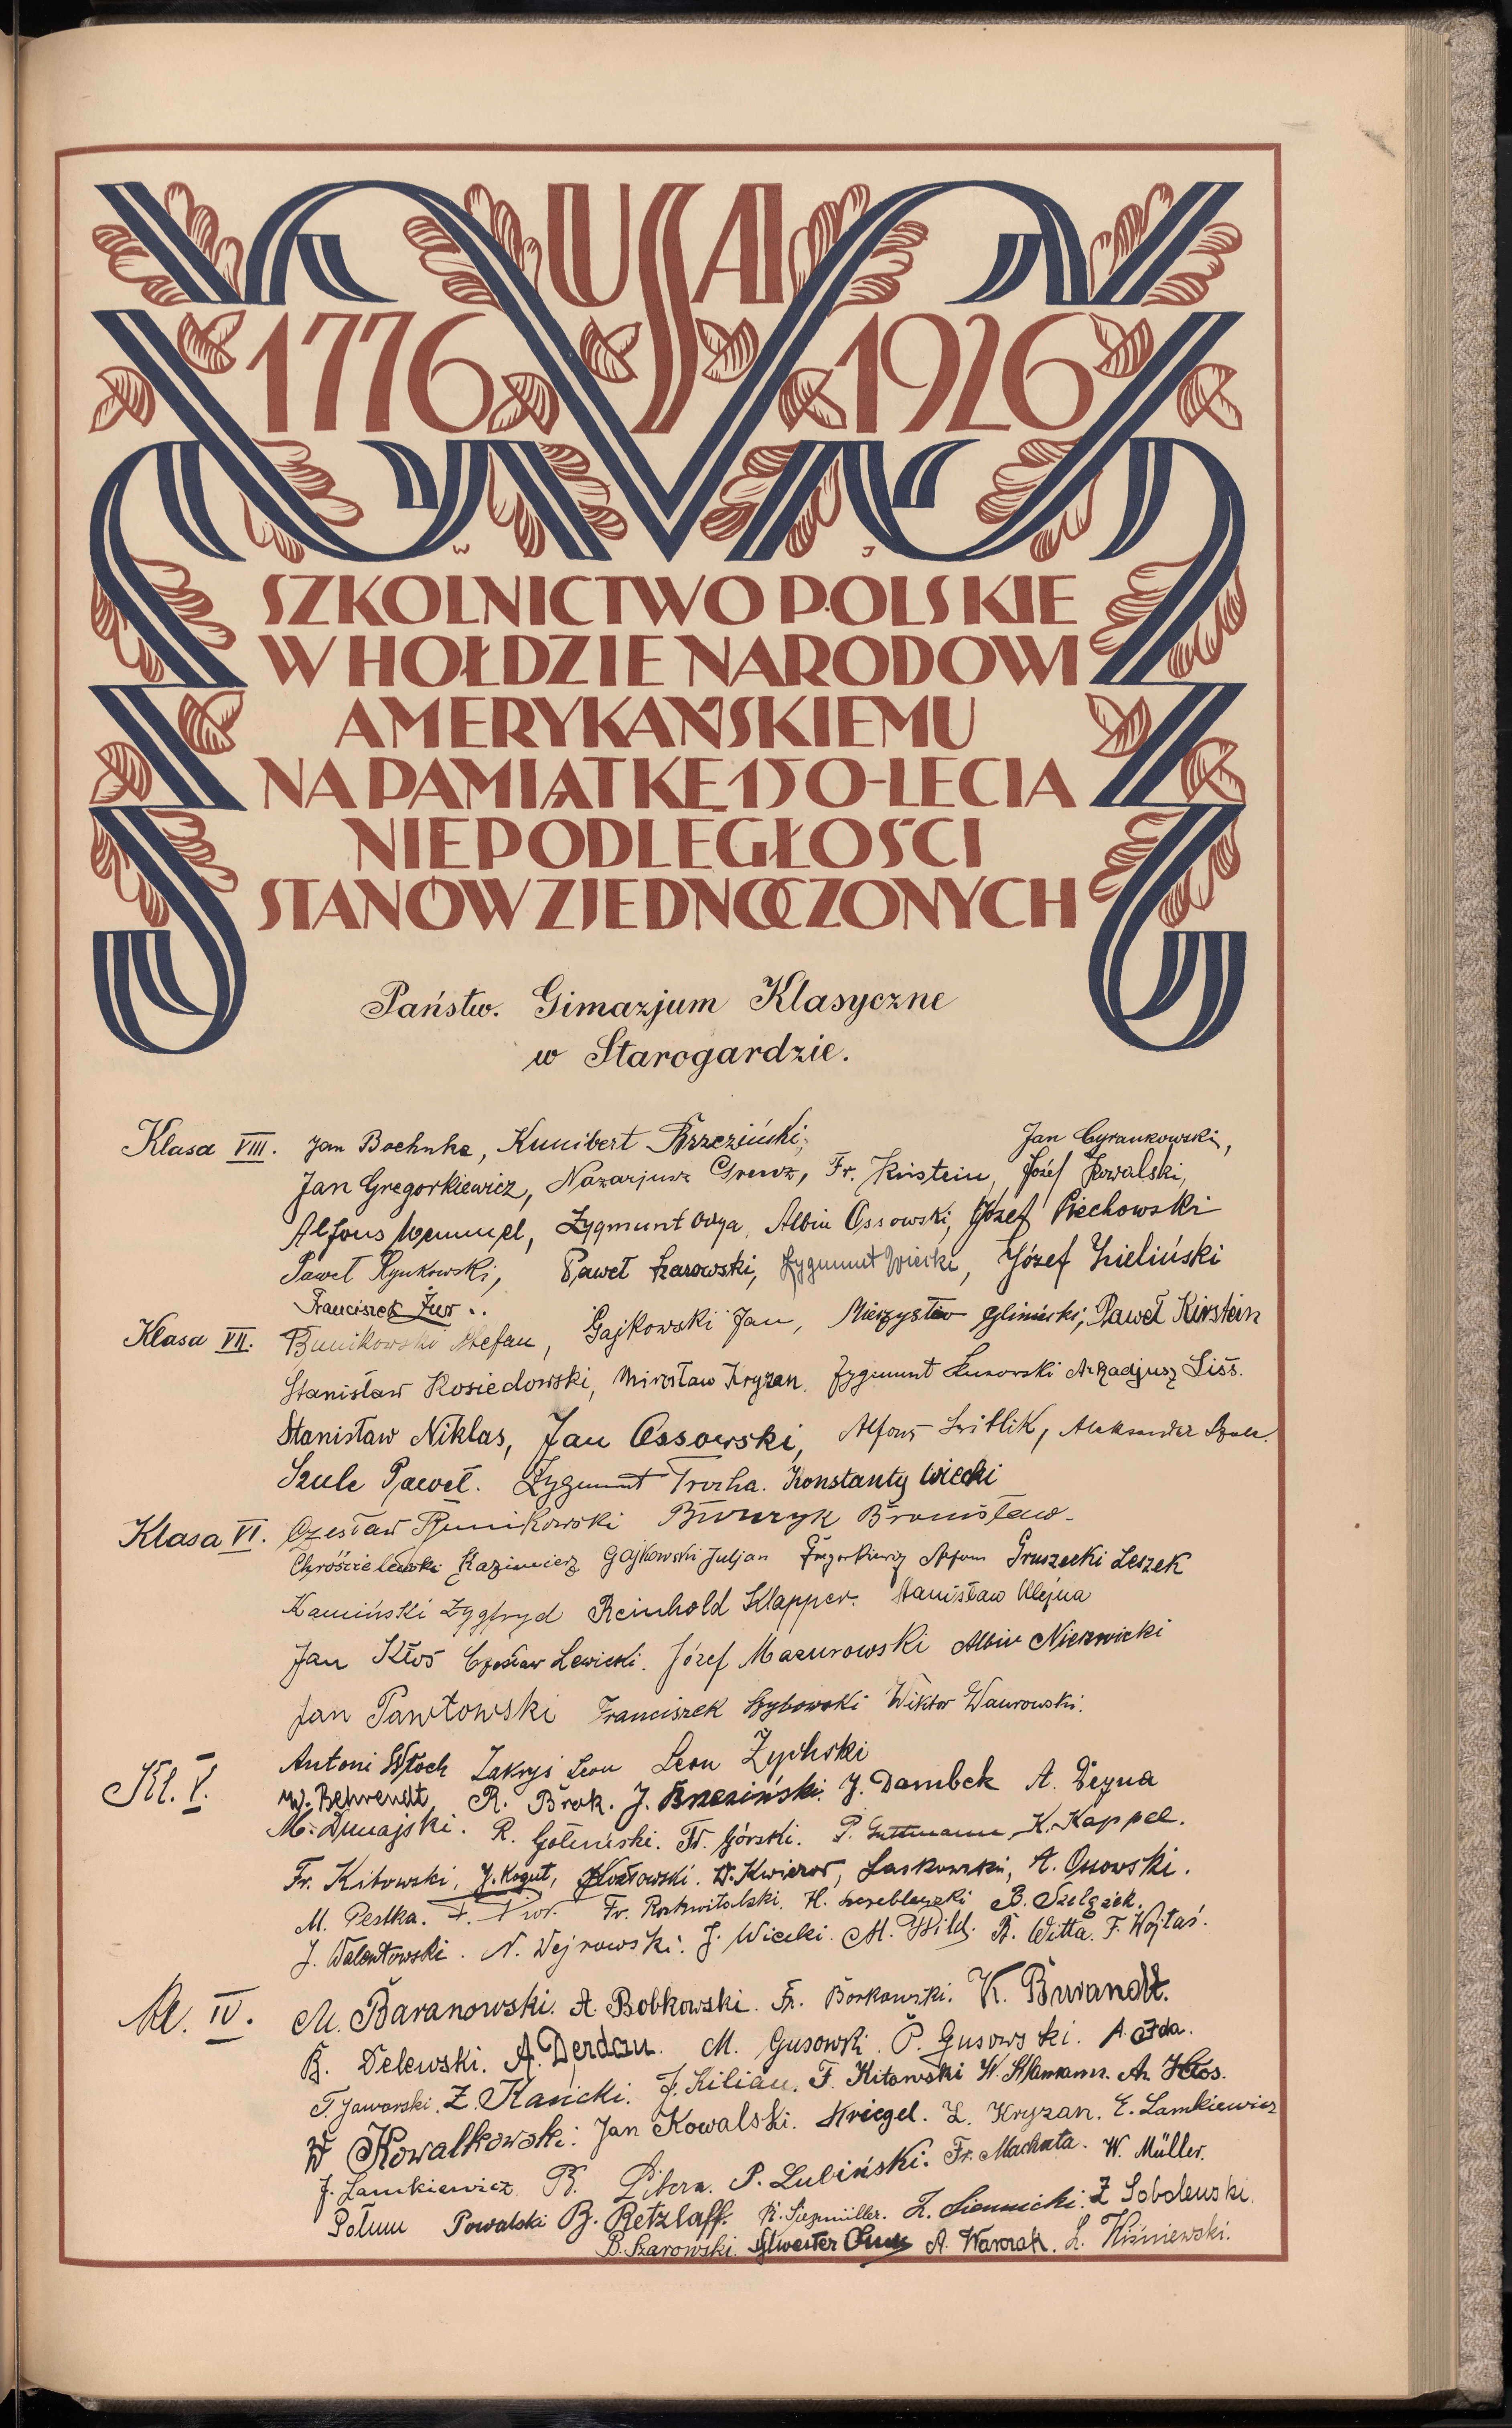 USA
1776 1926
W J
SZKOLNICTWO POLSKIE
W HOŁDZIE NARODOWI
AMERYKAŃSKIEMU
NA PAMIĄTKĘ 150-LECIA
NIEPODLEGŁOŚCI
STANÓW ZJEDNOCZONYCH
Państw. Gimazjum Klasyczne
w Starogardzie.
Klasa VIII. Jan Bochnke, Kunibert Brzeziński, Jan Cyrankowski,
Jan Gregorkiewicz, Nazarjusz Grenz, Fr. Kirstein, Józef Kowalski,
Alfons, Zygmunt Orga, Albin Ossowski, Józef Piechowski
Paweł Rynkowski, Paweł Szarowski, Zygmunt Wiecki, Józef Zieliński
Franciszek Żur.
Klasa VII. Bunikowski Stefan, Gajkowski Jan, Mieczysław Gliniecki, Paweł Kirstein
Stanisław Kosiedowski, Mirosław Kryzan, Zygmunt Arkadjusz Liss.
Stanisław Niklas, Jan Ossowski, Alfons Switlik, Aleksander
Szulc Paweł. Zygmunt Trocha. Konstanty Wiecki
Klasa VI. Czesław Bunikowski Bronisław
Chróścielewski Kazimierz Gajkowski Juljan Gregorkiewicz Alfons Gruszecki Leszek
Kamiński Zygfryd Reinhold Klapper. Stanisław Klejna
Jan Kłos Czesław Lewicki. Józef Mazurowski Albin Nierzwicki
Jan Pawłowski Franciszek Szybowski Wiktor Waurowski.
Antoni Włoch Zakryś Leon Leon Żychski
Kl. V. W. Behrendt, R. Brok. J. Brzeziński. J. Dambek A. Deyna
M. Dunajski. R. Goliński. Fr. Górski. P. Guttmann K. Kappel.
Fr. Kitowski, J. Kogut, Kozłowski. W. Kwieror, Laskowski, A. Osowski.
M. Pestka. F. Piór. Fr. Rozkwitalski, H. Szreblewski B. Szelążek.
J. Walentowski. N. Wejrowski. J. Wiecki. M. Wild. B. Witta. F. Wojtaś.
Kl. IV. M. Baranowski. A. Bobkowski. Fr. Borkowski. K. Burandt.
B. Delewski. A. Derdau. M. Gusowski. P. Gusowski. A. Izda.
T. Jaworski. Z. Kanicki. J. Kilian. F. Kitowski W. A. Kłos.
W Kowalkowski. Jan Kowalski. Kriegel. L. Kryzan. E. Lamkiewicz
J. Lamkiewicz. B. Libera. P. Lubiński. Fr. Machuta. W. Müller.
Połum Powalski B. Retzlaff. R. Siegmüller. L. Siennicki. Z Sobolewski.
B. Szarowski. Sylwester A. Warczak. L. Wiśniewski.